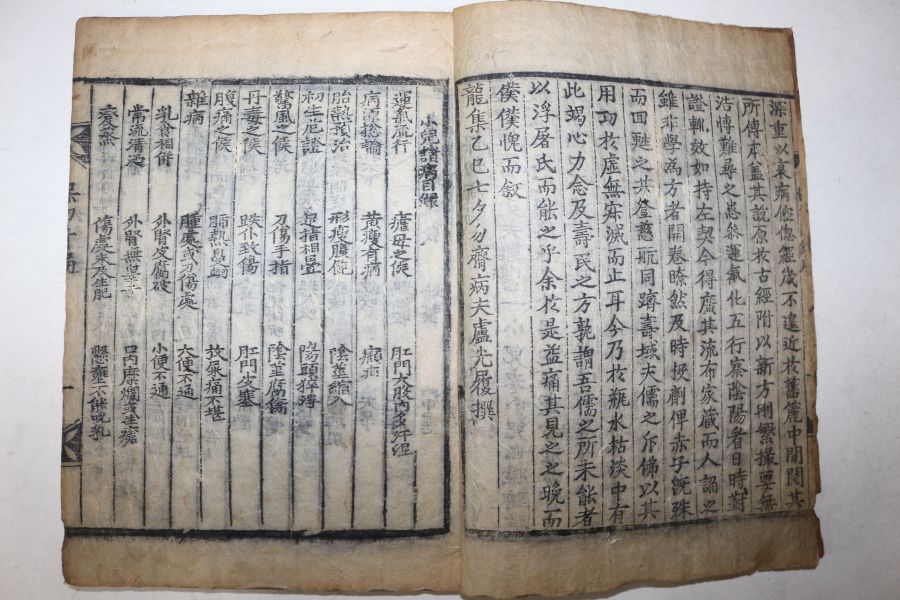 深重以哀病倥偬歲不遑近於舊篋中閒閱其
所傳本蓋其說原於古經附以新方刪繁撮要無
浩博難尋之患參運氣化五行察陰陽者日時對
證輒效如持左契今得廣其流布家藏而人誦之
雖非學為方者開卷瞭然及時投劑俾赤子旣殊
而回甦之共登慈航同躋壽域夫儒之斥佛以其
用功於虛無寂滅而止耳今乃於瓶水枯淡中有
此竭心力念及壽民之方孰謂吾儒之所未能者
以浮屠氏而能之乎余於是益痛其見之之晚而
僕僕愧而敘
龍集乙巳七夕勿齋病夫盧先履撰
小兒諸病目録
運氣流行 瘧母之候 肛門大股內多汗濕
病源總論 黃瘦有病 㿗疝
胎熱預治 形瘦腹脹 陰莖縮入
初生危證 足指相疊 陽頭猝腫
驚風之候 刀傷手指 陰莖腐傷
丹毒之候 跌仆致傷 肛門皮塞
腹痛之候 肺熱鼻衄 放糞痛不堪
雜病 腫處或刀傷處 大便不通
乳食相併 外腎皮腐破 小便不通
常流清涕 外腎無 口內糜爛或生瘡
傷處未及生肥 懸壅不能吮乳